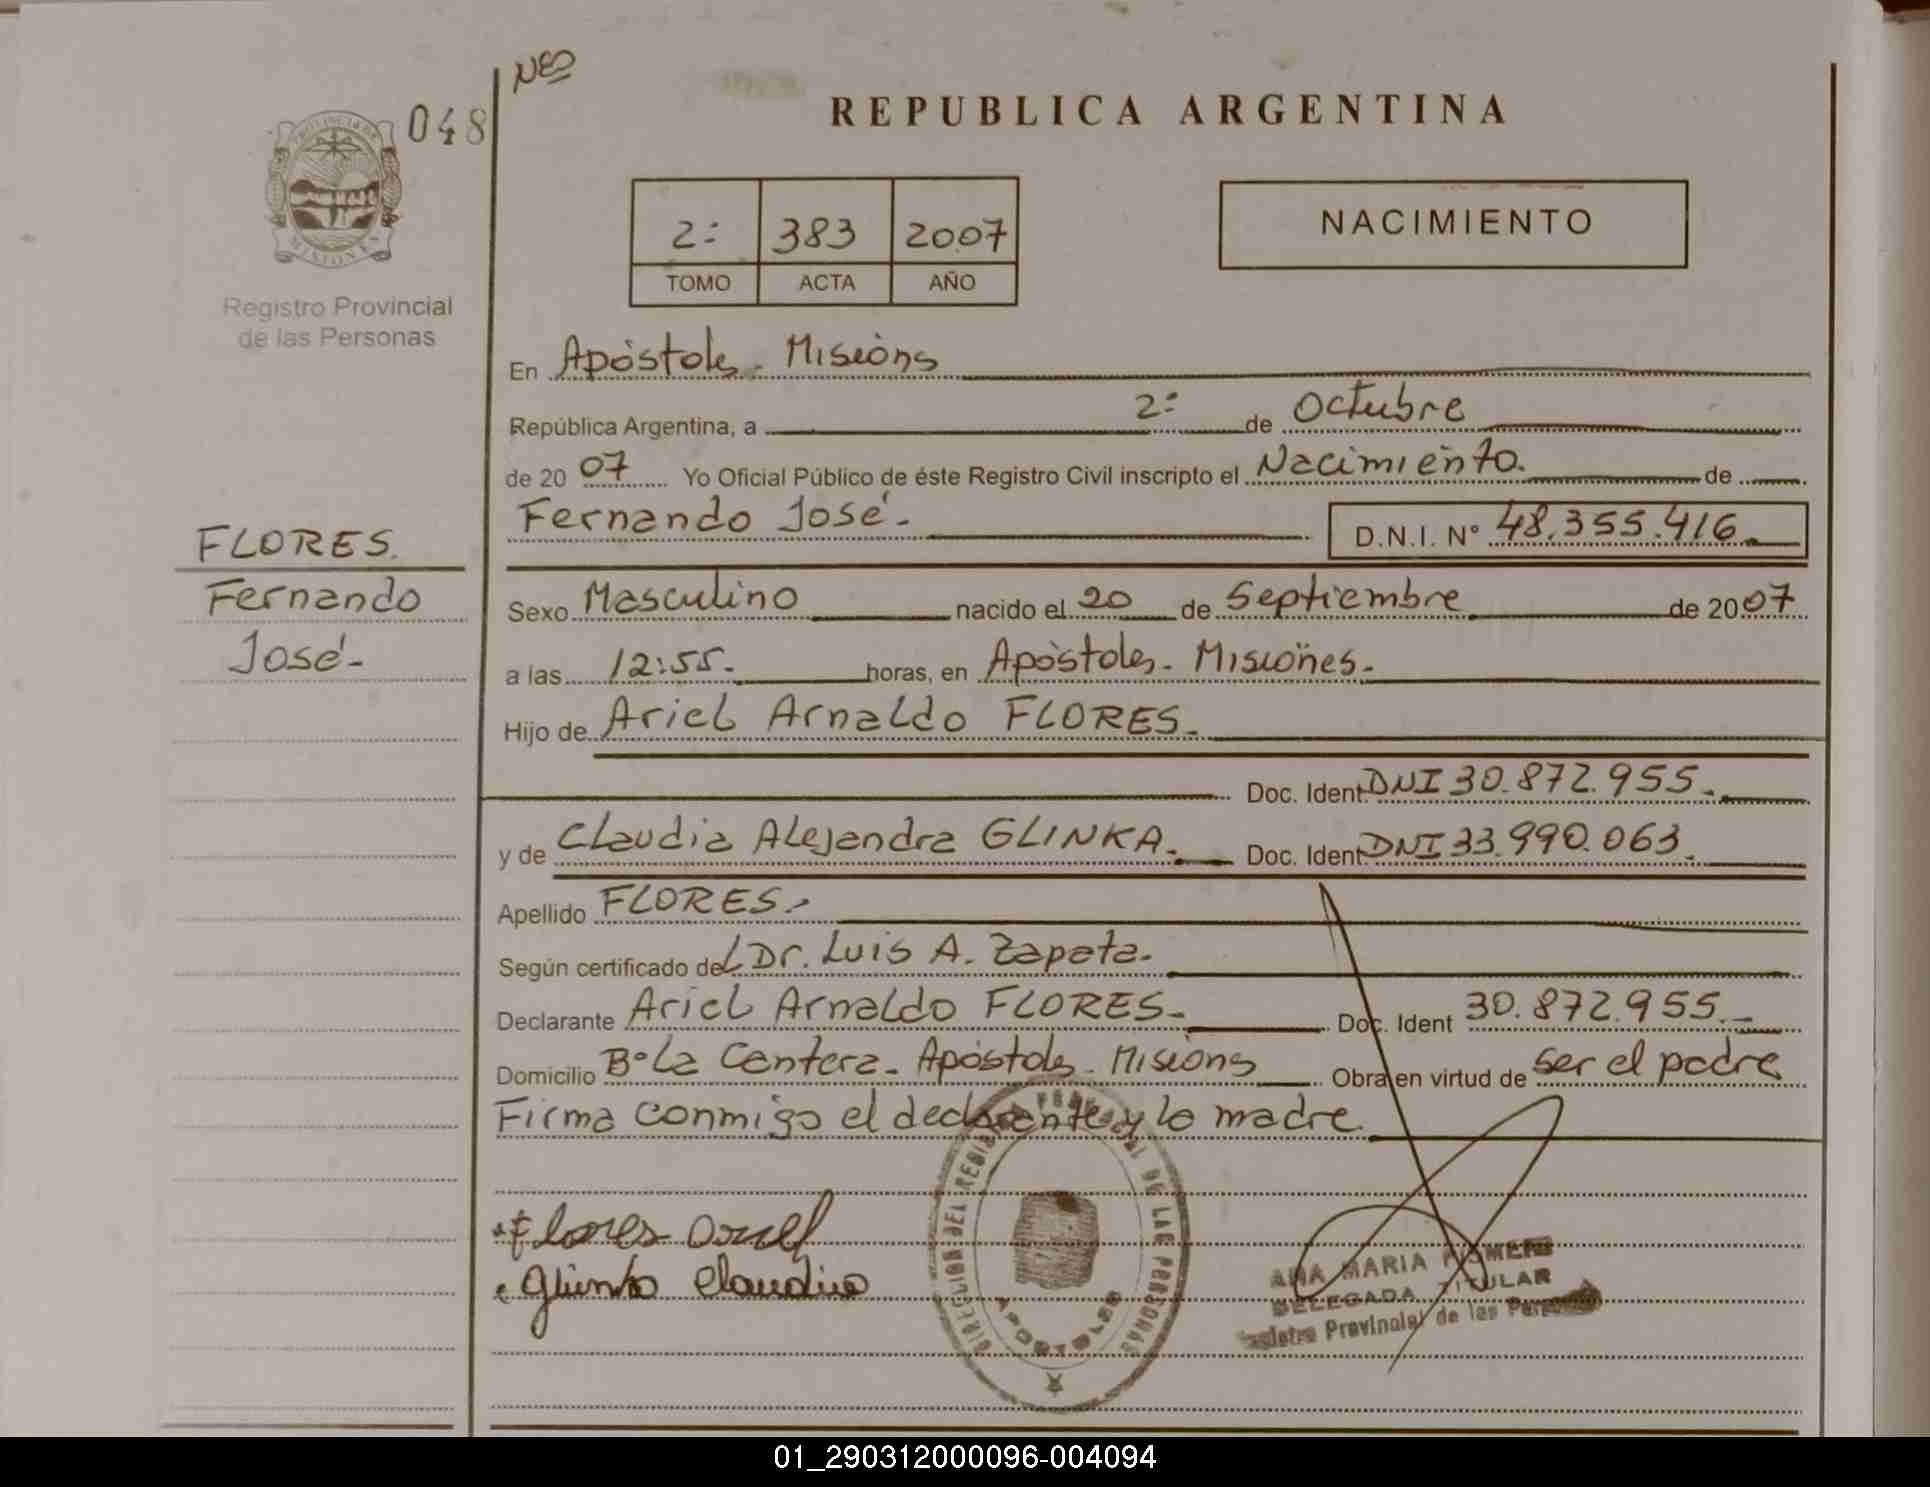 NEO
048
REPUBLICA ARGENTINA
PROVINCIA DE
MISIONES
2º 383 2007
TOMO ACTA AÑO
NACIMIENTO
Registro Provincial
de las Personas
En Apóstoles - Misiones
República Argentina, a 2º de Octubre
de 2007 Yo Oficial Público de éste Registro Civil inscripto el Nacimiento. de
Fernando José.- D.N.I. Nº 48.355.416.
FLORES.
Fernando
José-
Sexo Masculino nacido el 20 de Septiembre de 2007
a las 12:55. horas, en Apóstoles - Misiones.
Hijo de Ariel Arnaldo FLORES.
Doc. Ident. DNI 30.872.955.
y de Claudia Alejandra GLINKA. Doc. Ident. DNI 33.990.063.
Apellido FLORES.
Según certificado del Dr. Luis A. Zapata.
Declarante Ariel Arnaldo FLORES. Doc. Ident 30.872.955.
Domicilio Bº La Cantera - Apóstoles - Misiones Obra en virtud de ser el padre
Firma conmigo el declarante y la madre.
Flores Ariel
Glinka Claudia
DIRECCION DEL REGISTRO PROVINCIAL DE LAS PERSONAS
APOSTOLES
ANA MARIA
DELEGADA TITULAR
Registro Provincial de las Personas
01_290312000096-004094